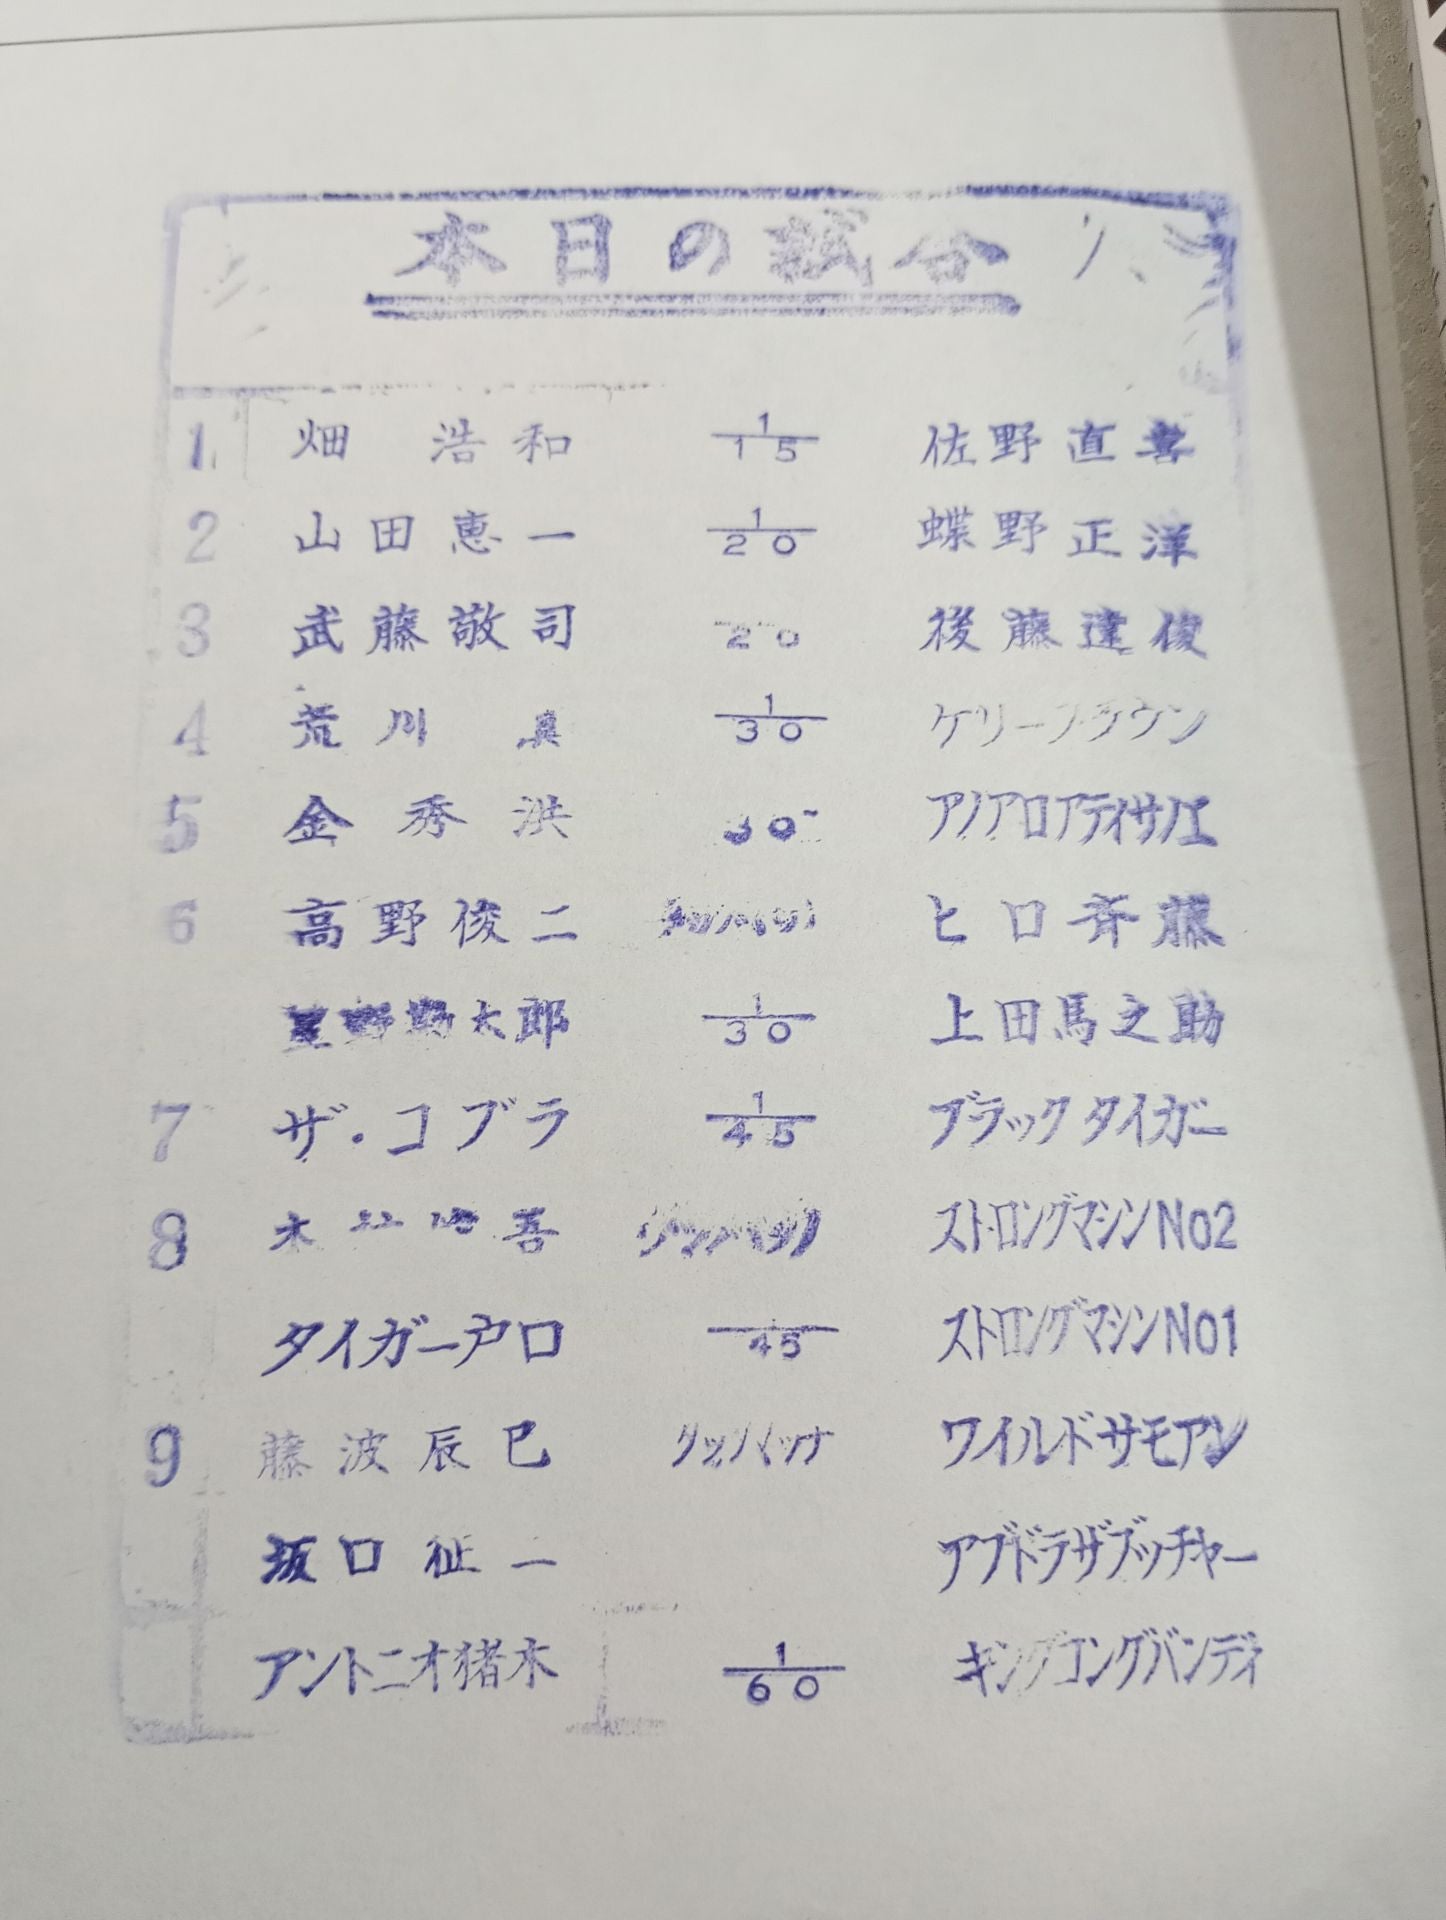 本日の試合
1 畑 浩和 1/15 佐野直喜
2 山田恵一 1/20 蝶野正洋
3 武藤敬司 20 後藤達俊
4 荒川 真 1/30 ケリーブラウン
5 金秀洪 30 アノアロアティサノエ
6 高野俊二 タッグマッチ ヒロ斉藤
星野勘太郎 1/30 上田馬之助
7 ザ・コブラ 1/45 ブラックタイガー
8 木 吾 ストロングマシンNo2
タイガー戸口 45 ストロングマシンNo1
9 藤波辰巳 ワイルドサモアン
坂口征二 アブドラザブッチャー
アントニオ猪木 1/60 キングコングバンディ